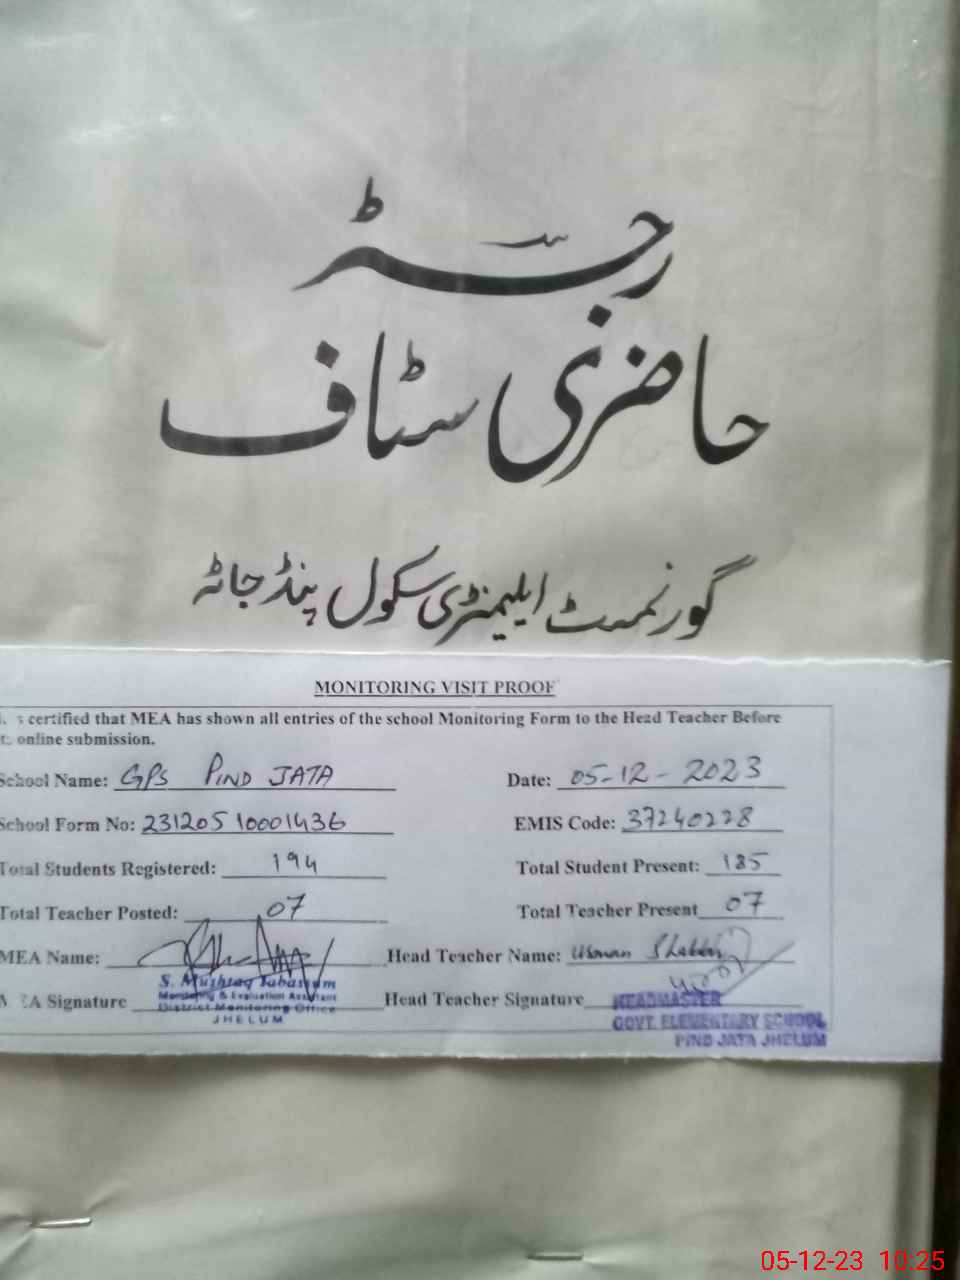 رجسٹر
حاضری سٹاف
گورنمنٹ ایلیمنٹری سکول پنڈ جاٹہ
MONITORING VISIT PROOF
is certified that MEA has shown all entries of the school Monitoring Form to the Head Teacher Before
its online submission.
School Name: GPS PIND JATA Date: 05-12-2023
School Form No: 23120510001436 EMIS Code: 37240228
Total Students Registered: 194 Total Student Present: 185
Total Teacher Posted: 07 Total Teacher Present 07
MEA Name: Head Teacher Name: Usman
S. Mushtaq Tabassum
MEA Signature Head Teacher Signature
Monitoring & Evaluation Assistant
District Monitoring Office
JHELUM
HEADMASTER
GOVT. ELEMENTARY SCHOOL
PIND JATA JHELUM
05-12-23 10:25